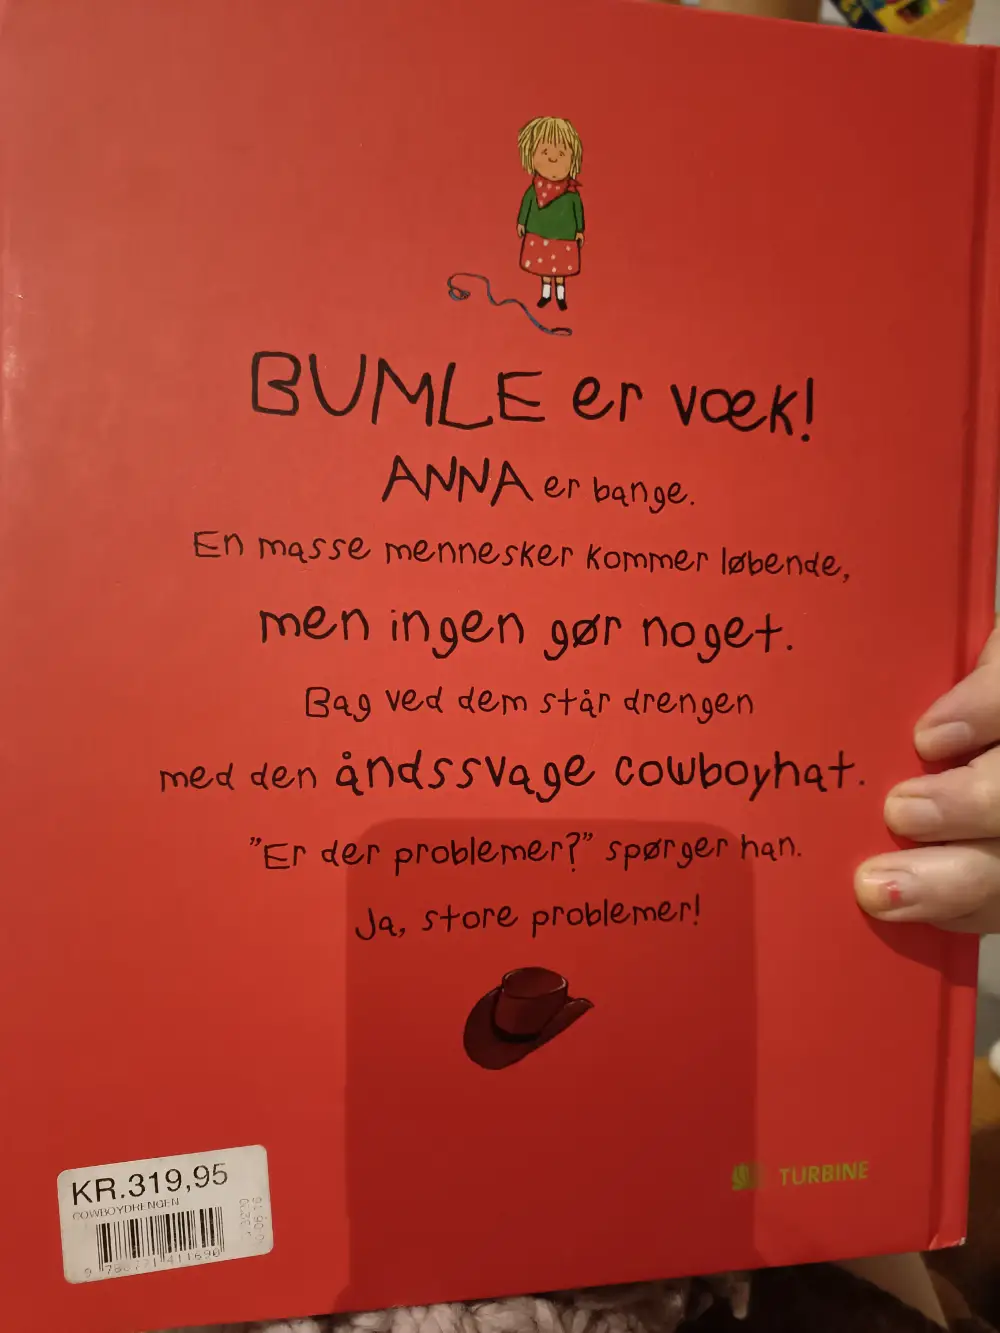 BUMLE er væk!
ANNA er bange.
En masse mennesker kommer løbende,
men ingen gør noget.
Bag ved dem står drengen
med den åndssvage cowboyhat.
”Er der problemer?” spørger han.
Ja, store problemer!
KR.319,95
COWBOYDRENGEN
TURBINE